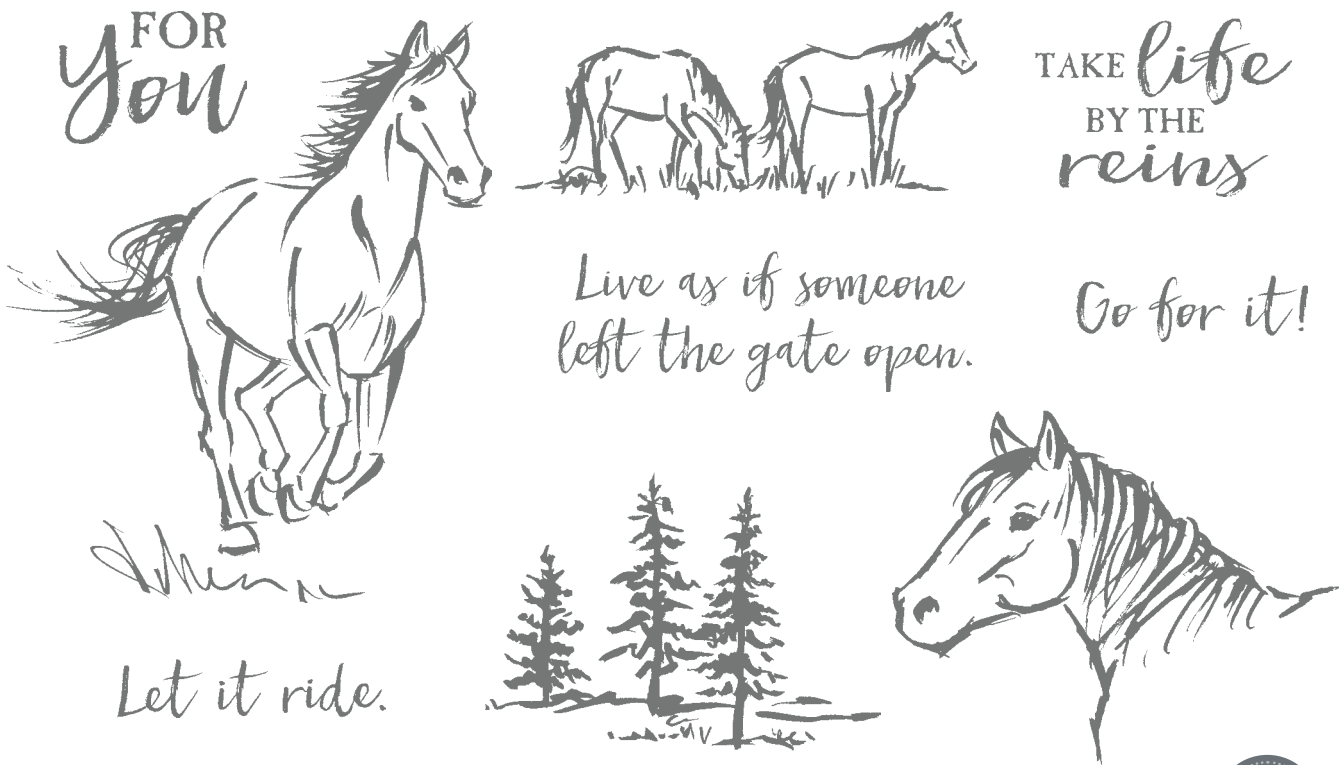 FOR
you
TAKE life
BY THE
reins
Live as if someone
left the gate open.
Go for it!
Let it ride.